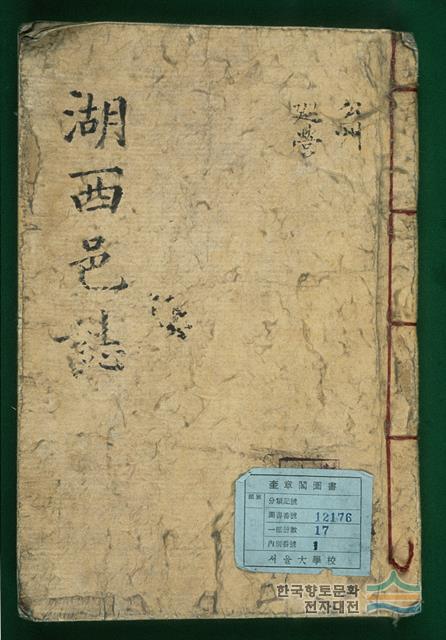 湖西邑誌
公州
巡營
奎章閣圖書
分類記號
圖書番號 12176
一部冊數 17
內別番號 1
서울大學校
한국향토문화
전자대전